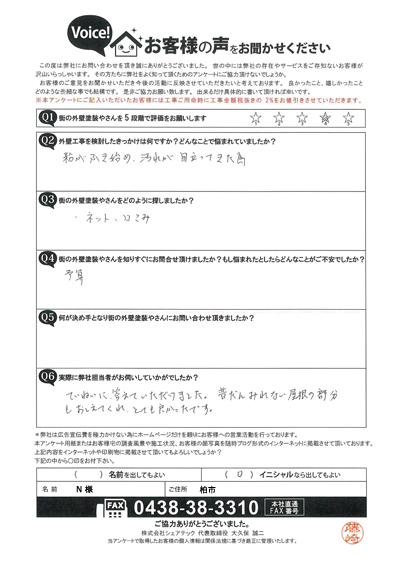 Voice!
お客様の声をお聞かせください
この度は弊社にお問い合わせを頂き誠にありがとうございました。世の中には弊社の存在やサービスをご存知ないお客様が
沢山いらっしゃいます。その方たちに弊社をよく知って頂くためのアンケートにご協力頂けないでしょうか。
お客様のご意見をお聞かせいただき今後の活動に反映させていただきたいと考えております。良かったこと、嬉しかったこと
どのような些細な事でも結構です。是非ご協力お願い致します。出来るだけ具体的に書いて頂ければ幸いです。
※本アンケートにご記入いただいたお客様には工事ご用命時に工事金額税抜きの 2%をお値引きさせていただきます。
Q1 街の外壁塗装やさんを5段階で評価をお願いします ☆ ☆ ☆ ☆ ☆
Q2 外壁工事を検討したきっかけは何ですか？どんなことで悩まれていましたか？
粉がふき始め、汚れが目立ってきた為
Q3 街の外壁塗装やさんをどのように探しましたか？
・ネット、口こみ
Q4 街の外壁塗装やさんを知りすぐにお問合せ頂けましたか？もし悩まれたとしたらどんなことがご不安でしたか？
予算
Q5 何が決め手となり街の外壁塗装やさんにお問い合わせ頂きましたか？
Q6 実際に弊社担当者がお伺いしていかがでしたか？
ていねいに、答えていただけました。普だんみれない屋根の部分
もおしえてくれ、とても良かったです。
※弊社は広告宣伝費を極力かけない為にホームページだけを頼りにお客様への営業活動を行っております。
本アンケート用紙またはお客様宅の調査風景や施工状況、お客様の顔写真を随時ブログ形式のインターネットに掲載させて頂いております。
上記内容をインターネットや印刷物に掲載させて頂いてもよろしいでしょうか？
下記の中から〇印をお付け下さい。
（　）名前を出してもよい （○）イニシャルなら出してもよい
名前 N 様 ご住所 柏市
FAX 0438-38-3310 本社直通 FAX 番号
ご協力ありがとうございました。
株式会社シェアテック 代表取締役 大久保 誠二
当アンケートで取得したお客様の個人情報は関係法規に基づき厳正に管理いたします。